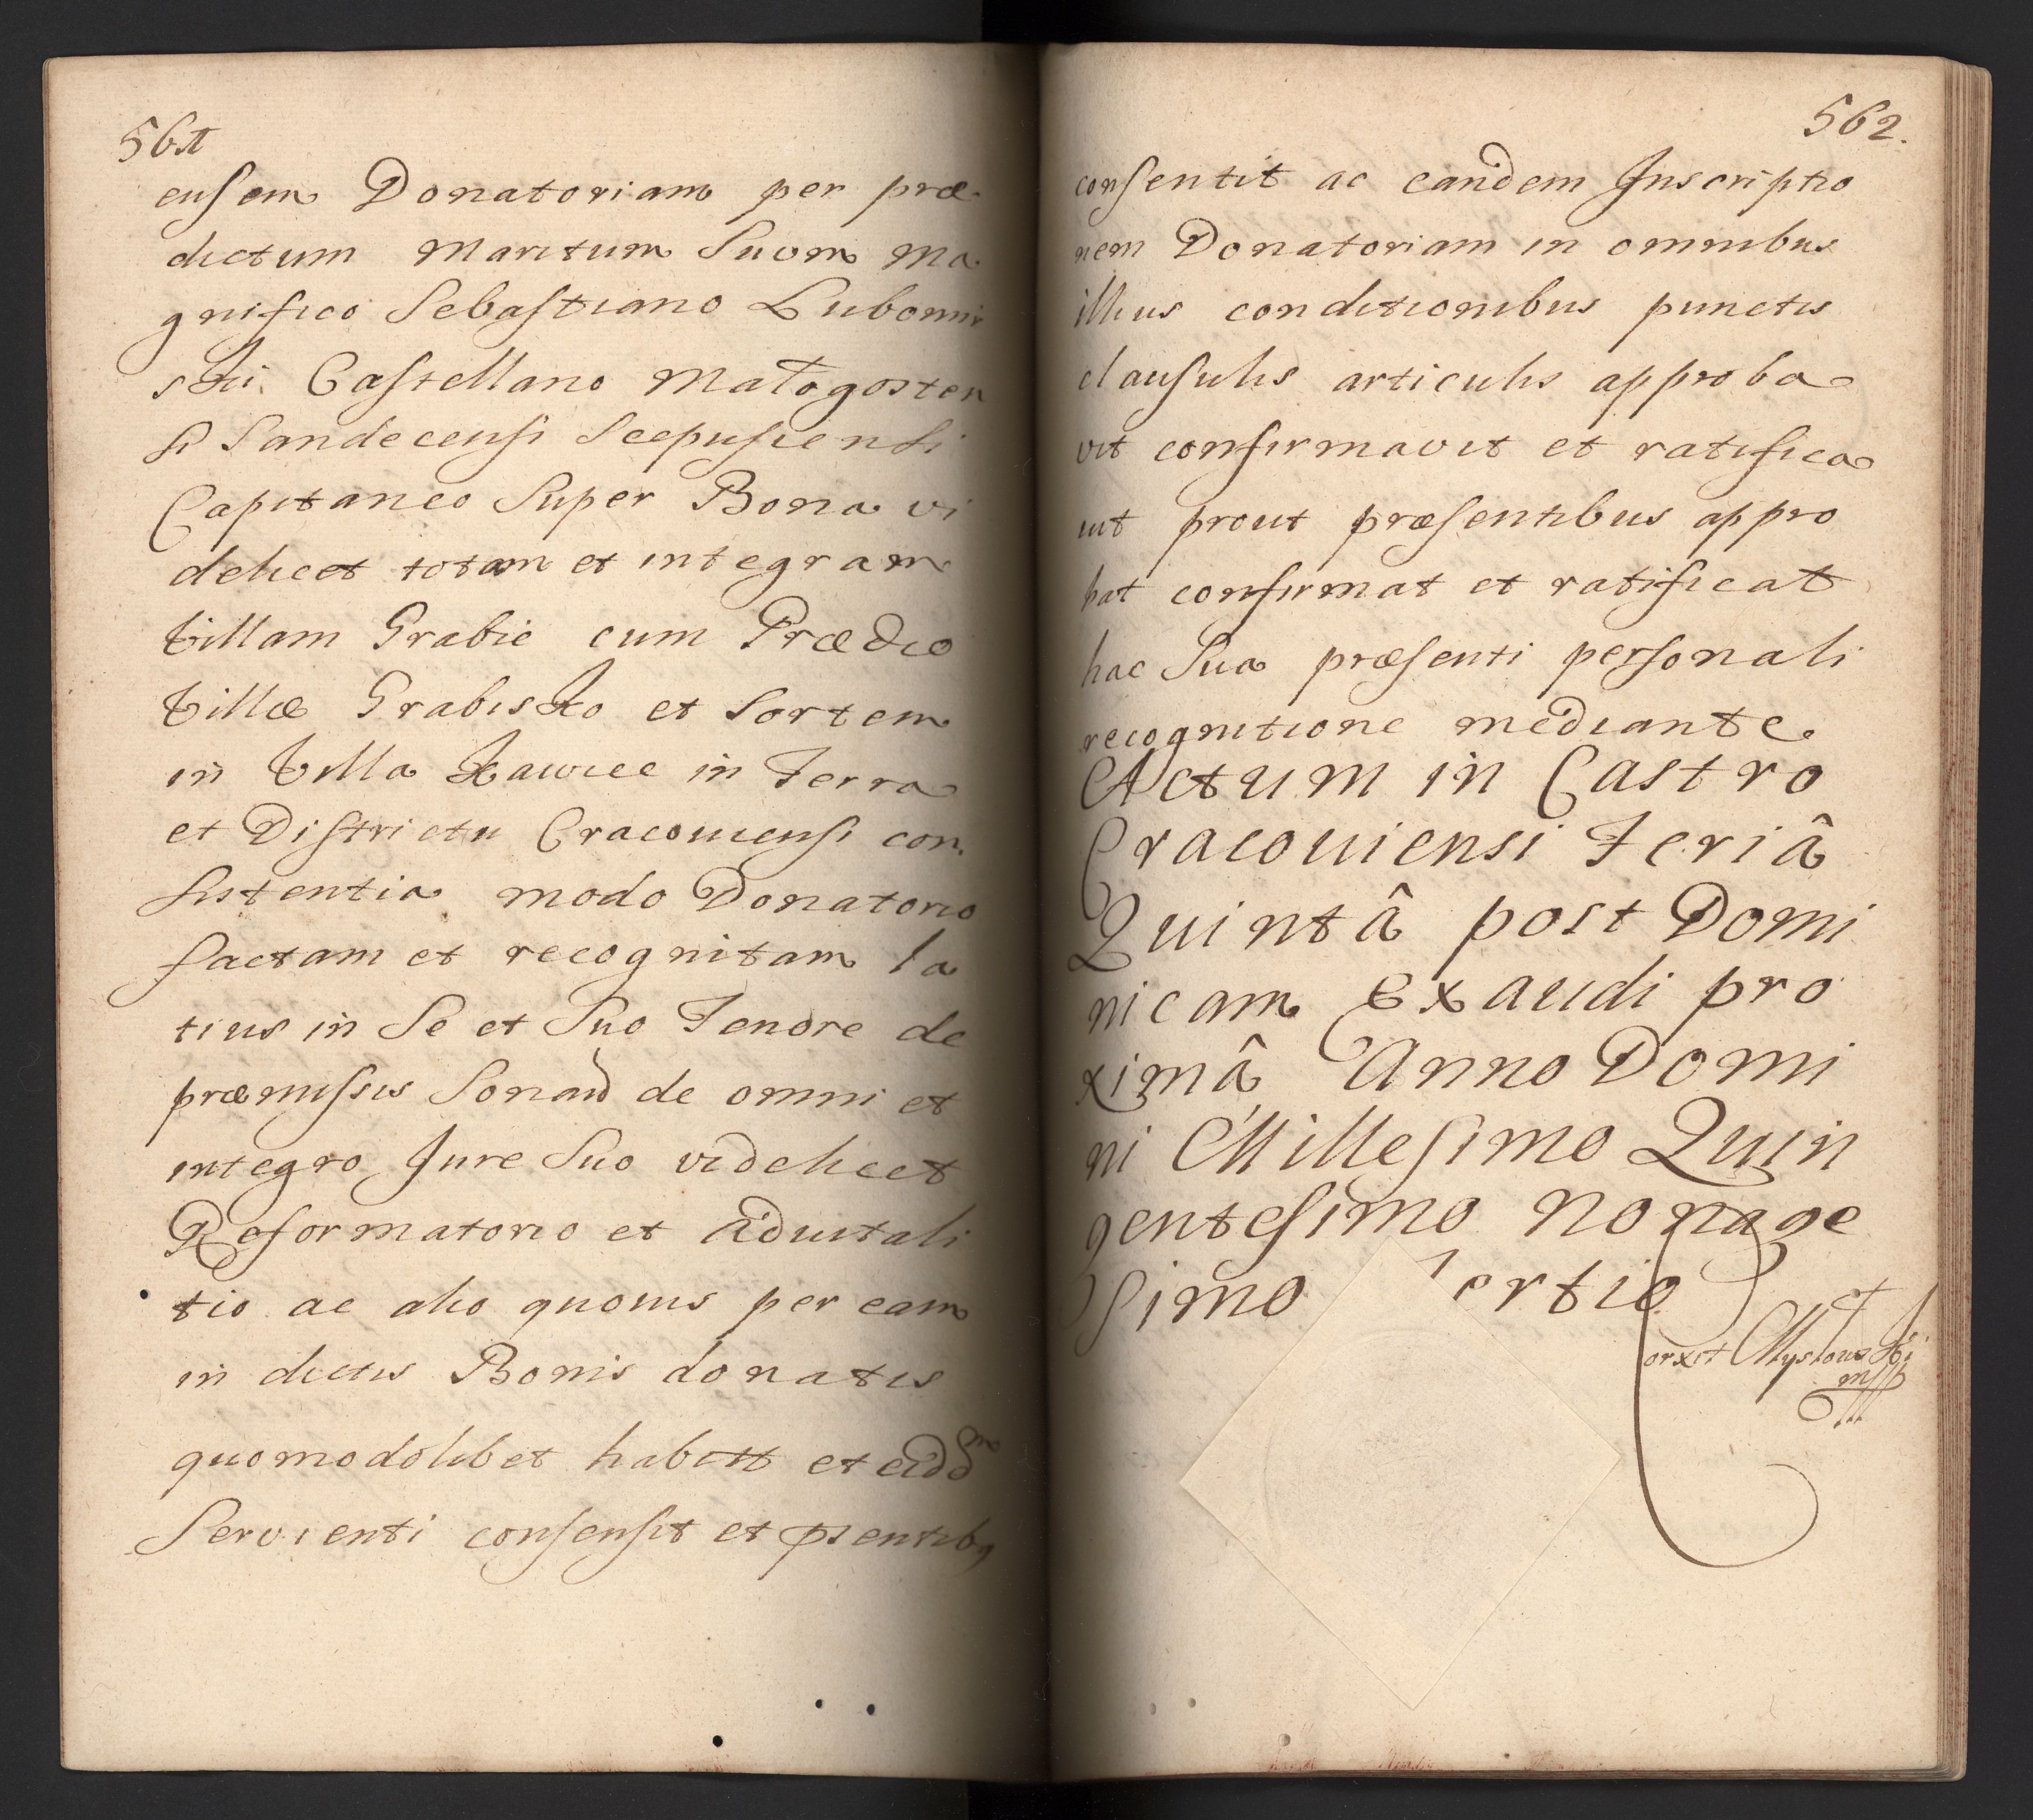 561
ensem Donatoriam per præ-
dictum Maritum Suum Ma
gnifico Sebastiano Lubomir
ski Castellano Małogosten
si Sandecensi Scepusiensi
Capitaneo Super Bona vi
delicet totam et integram
Villam Grabie cum Prædio
Villæ Grabisko et Sortem
in Villa Kawiec in Terra
et Districtu Cracoviensi con
sistentia modo Donatorio
factam et recognitam la
tius in Se et Suo Tenore de
præmissis Sonan̄ de omni et
integro Jure Suo videlicet
Reformatorio et Advitali
tio ac alio quovis per eam
in dictis Bonis donatis
quomodolibet habitt et eidd^m
Servienti consensit et psentibq
562.
consentit ac eandem Inscriptio
nem Donatoriam in omnibus
illius conditionibus punctis
clausulis articulis approba
vit confirmavit et ratifica
uit prout præsentibus appro
bat confirmat et ratificat
hac Sua præsenti personali
recognitione mediante.
Actum in Castro
Cracouiensi Feriâ
Quintâ post Domi
nicam Exaudi pro
ximâ Anno Domi
ni Millesimo Quin
gentesimo Nonage
simo Tertio
Corxit Mysłowski
mpp